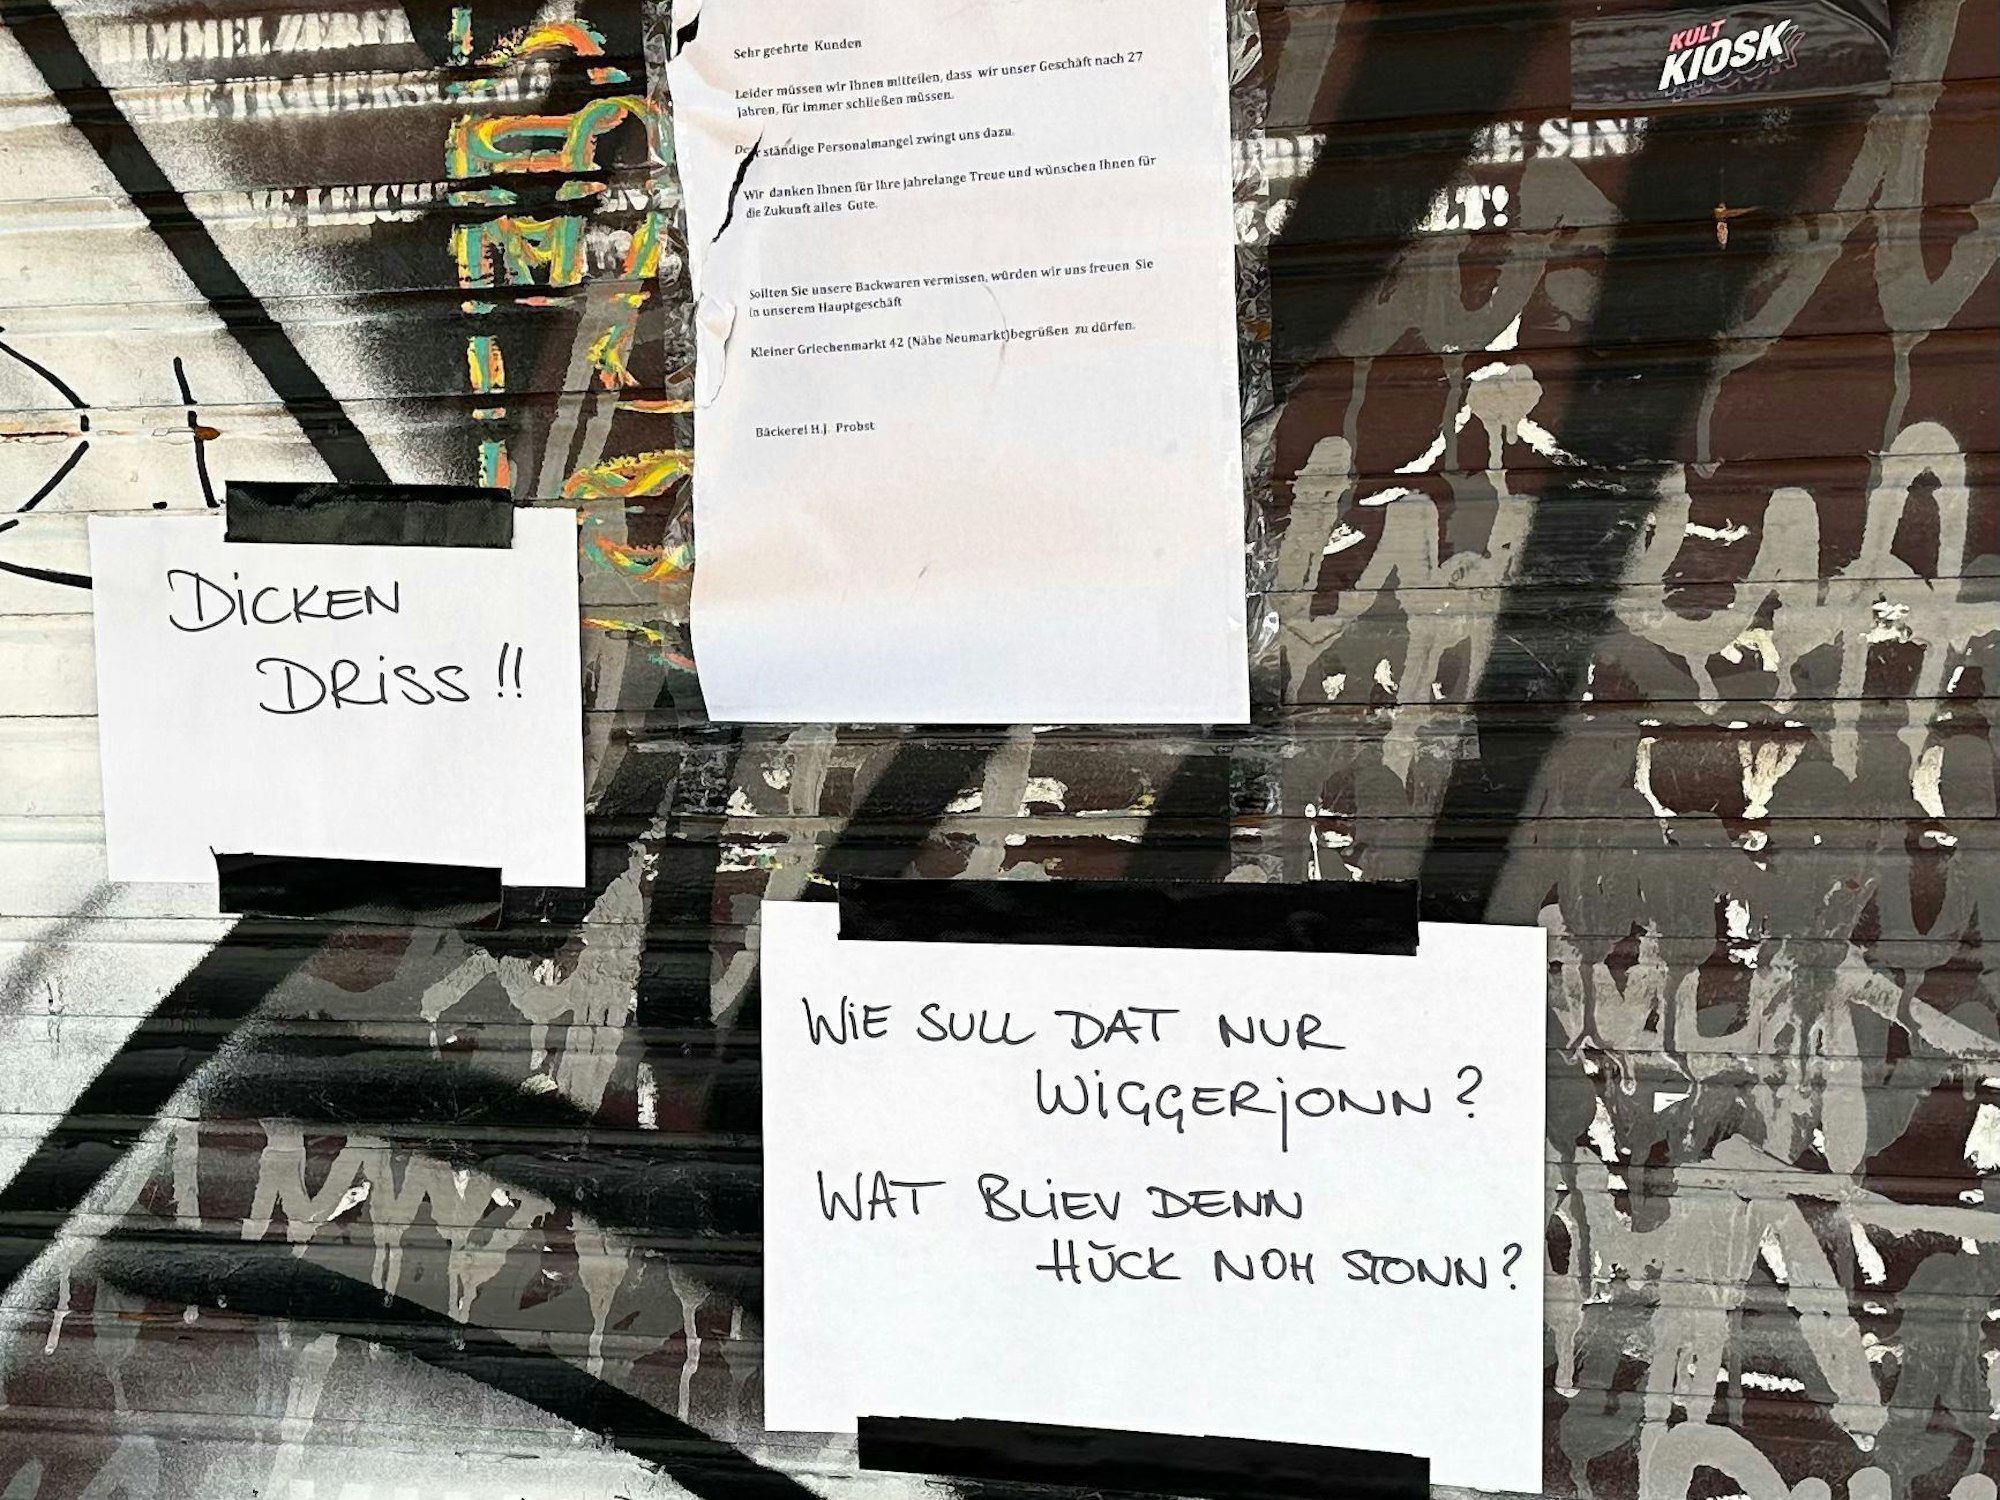 KULT
KIOSK
Sehr geehrte Kunden
Leider müssen wir Ihnen mitteilen, dass wir unser Geschäft nach 27
Jahren, für immer schließen müssen.
Der ständige Personalmangel zwingt uns dazu.
Wir danken Ihnen für Ihre jahrelange Treue und wünschen Ihnen für
die Zukunft alles Gute.
Sollten Sie unsere Backwaren vermissen, würden wir uns freuen Sie
in unserem Hauptgeschäft
Kleiner Griechenmarkt 42 (Nähe Neumarkt)begrüßen zu dürfen.
Bäckerei H.J. Probst
DICKEN
DRISS!!
WIE SULL DAT NUR
WIGGERJONN?
WAT BLIEV DENN
HÜCK NOH STONN?